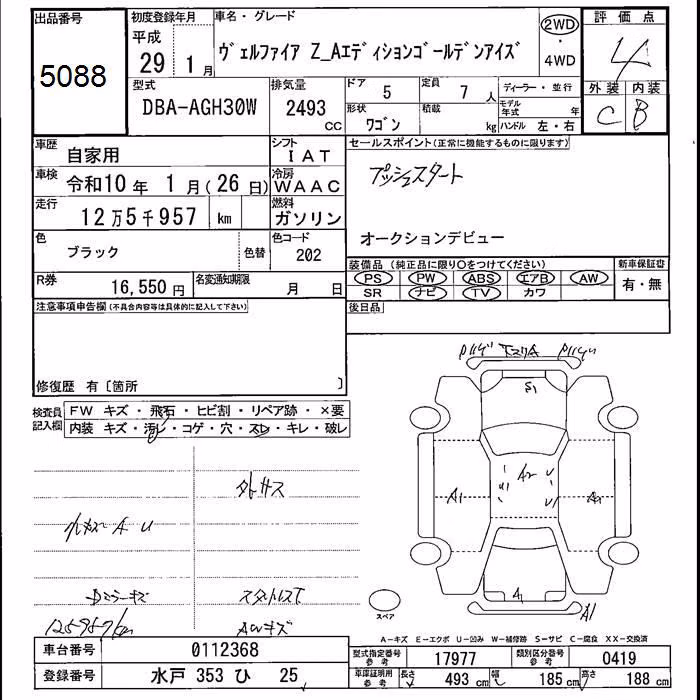 出品番号
5088
初度登録年月
平成
29 1 月
車名・グレード
ヴェルファイア Z_Aエディションゴールデンアイズ
2WD
・
4WD
評価点
4
外装 内装
C B
型式
DBA-AGH30W
排気量
2493
cc
ドア
5
定員
7 人
形状
ワゴン
積載
kg
ディーラー・並行
モデル年式 年
ハンドル 左・右
車歴
自家用
シフト
IAT
車検
令和10年 1月(26日)
冷房
WAAC
走行
12万5千957 km
燃料
ガソリン
色
ブラック
色替
色コード
202
R券
16,550円
名変通知期限
月 日
セールスポイント(正常に機能するものに限ります)
プッシュスタート
オークションデビュー
装備品(純正品に限り○をつけてください)
PS PW ABS エアB AW
SR ナビ TV カワ
新車保証書
有・無
後日品
注意事項申告欄(不具合内容等は具体的に記入して下さい)
修復歴 有〔箇所 〕
検査員記入欄
FW キズ・飛石・ヒビ割・リペア跡・×要
内装 キズ・汚レ・コゲ・穴・スレ・キレ・破レ
小キズ A U
Dミラーキズ
125957km
スタットレスT
AWキズ
S1
A2 U
U1
A1
A2
A1
A1
スペア
A-キズ E-エクボ U-凹み W-補修跡 S-サビ C-腐食 XX-交換済
車台番号
0112368
登録番号
水戸 353 ひ 25
型式指定番号
参考
17977
類別区分番号
参考
0419
車庫証明用
参考
長さ 493 cm
幅 185 cm
高さ 188 cm